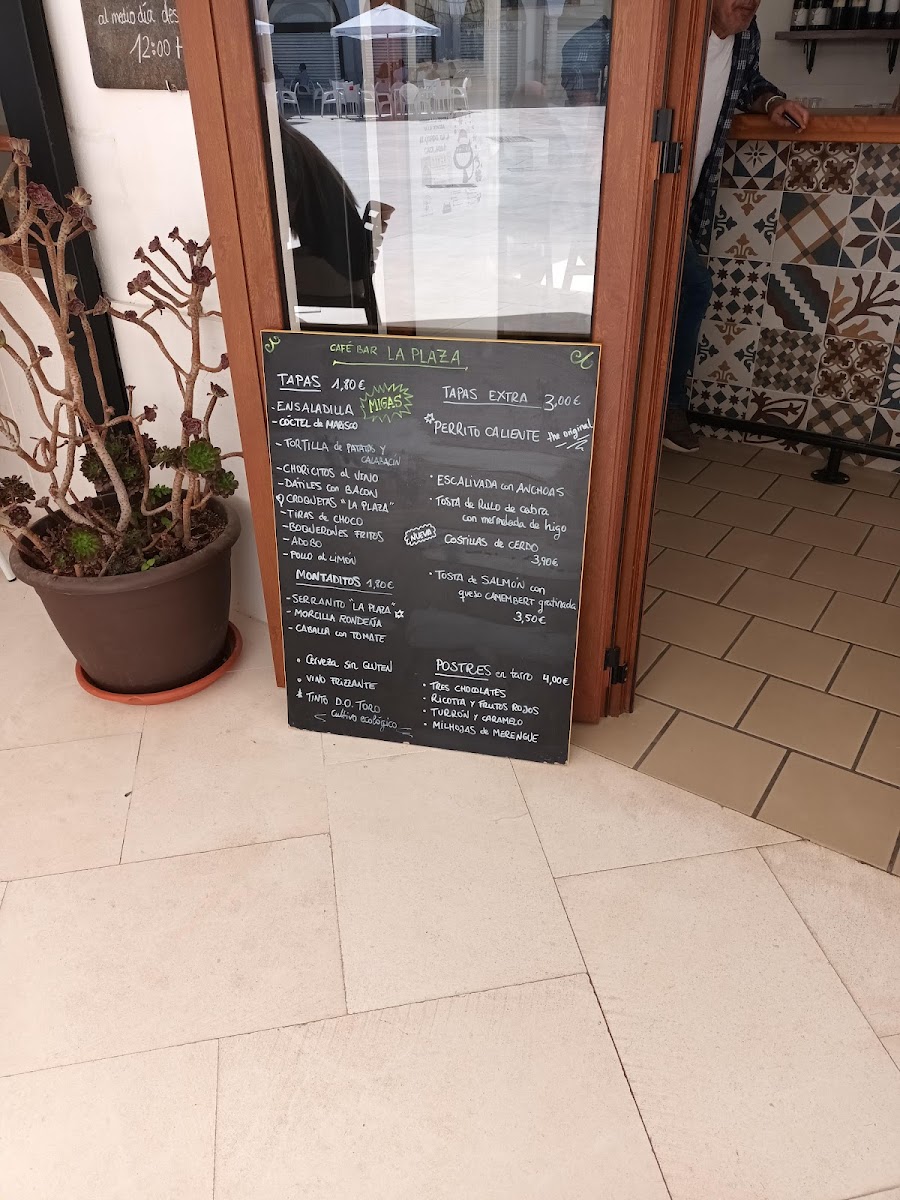 al medio día des
12:00 H
CAFÉ BAR LA PLAZA
TAPAS 1,80€
MIGAS
- ENSALADILLA
- CÓCTEL de MARISCO
- TORTILLA de PATATAS y
CALABACÍN
- CHORICITOS al VINO
- DÁTILES con BACON
CROQUETAS "LA PLAZA"
- TIRAS de CHOCO
- BOQUERONES FRITOS
- ADOBO
- POLLO al LIMÓN
MONTADITOS 1,80€
- SERRANITO "LA PLAZA"
- MORCILLA RONDEÑA
- CABALLA con TOMATE
Cerveza sin GLUTEN
VINO FRIZZANTE
TINTO D.O. TORO
cultivo ecológico
TAPAS EXTRA 3,00€
PERRITO CALIENTE the original
· ESCALIVADA con ANCHOAS
· TOSTA de RULO de cabra
con mermelada de higo
NUEVA!
COSTILLAS de CERDO
3,90€
· TOSTA de SALMÓN con
queso CAMEMBERT gratinada
3,50€
POSTRES en tarro 4,00€
· TRES CHOCOLATES
· RICOTTA y FRUTOS ROJOS
· TURRÓN y CARAMELO
· MILHOJAS de MERENGUE